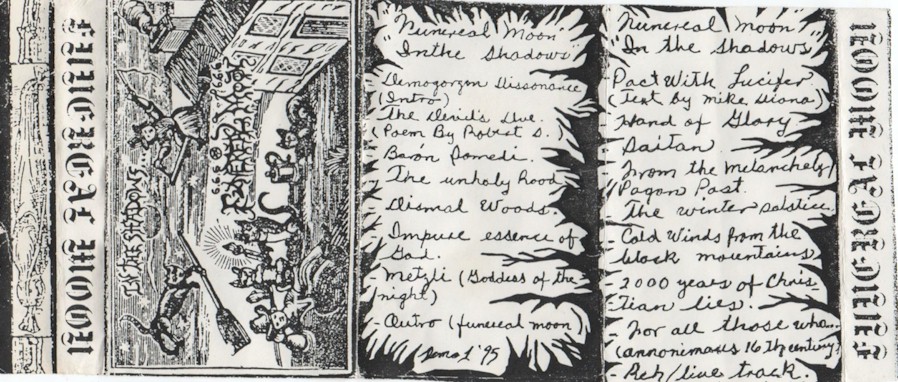 FUNEREAL MOON
IN THE SHADOWS...
666 666
FUNEREAL MOON
"Funereal Moon"
"In the Shadows"
- Demogorgon Dissonance
(Intro)
- The Devil's Live.
(Poem By Robert S.)
- Barón Pomedi.
- The unholy hood
- Dismal Woods.
- Impure essence of
God.
- Metzli (Goddess of the
night)
- Outro (funereal moon)
Demo 1 '95
"Funereal Moon"
"In the Shadows"
- Pact With Lucifer
(Text by Mike Diana)
- Hand of Glory
- Saitan
- From the Melancholy
Pagan Past.
- The winter solstice
- Cold Winds from the
black mountains
- 2000 years of Chris-
tian lies.
- For all those who...
(annonimous 16 th century)
- Reh/live track.
FUNEREAL MOON